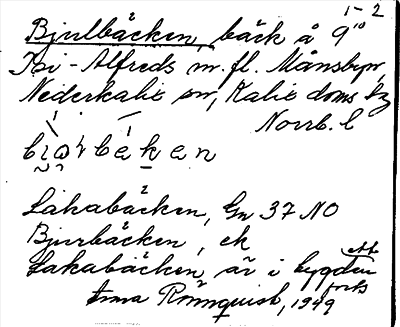 1-2
Bjulbäcken, bäck å 9¹⁰
Pi-Alfreds m. fl. Månsbyn,
Nederkalix sn, Kalix doms. hg
Norrb. l
Lakabäcken, Gn 37 NO
Bjurbäcken, ek
Lakabäcken är i bygden
Anna Rönnquist, 1949